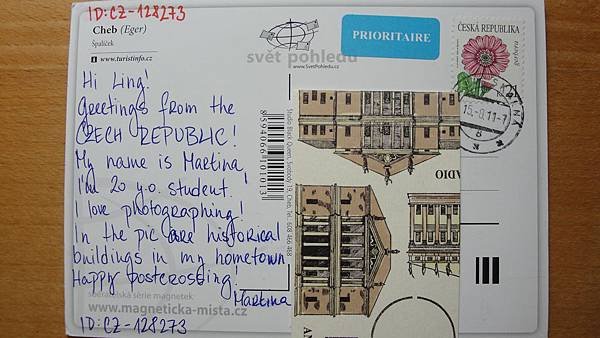 ID: CZ-128273
Cheb (Eger)
Špalíček
www.turistinfo.cz
Hi Ling!
Greetings from the
CZECH REPUBLIC!
My name is Martina,
I'm 20 y.o. student.
I love photographing!
In the pic are historical
buildings in my hometown
Happy postcrossing!
Martina
sběratelská série magnetek
www.magneticka-mista.cz
ID: CZ-128273
svět pohledů
www.SvetPohledu.cz
PRIORITAIRE
ČESKÁ REPUBLIKA
15.-8.11-7
8594066101013
Studio Black Queen, Svobody 19, Cheb, Tel.: 608 466 468